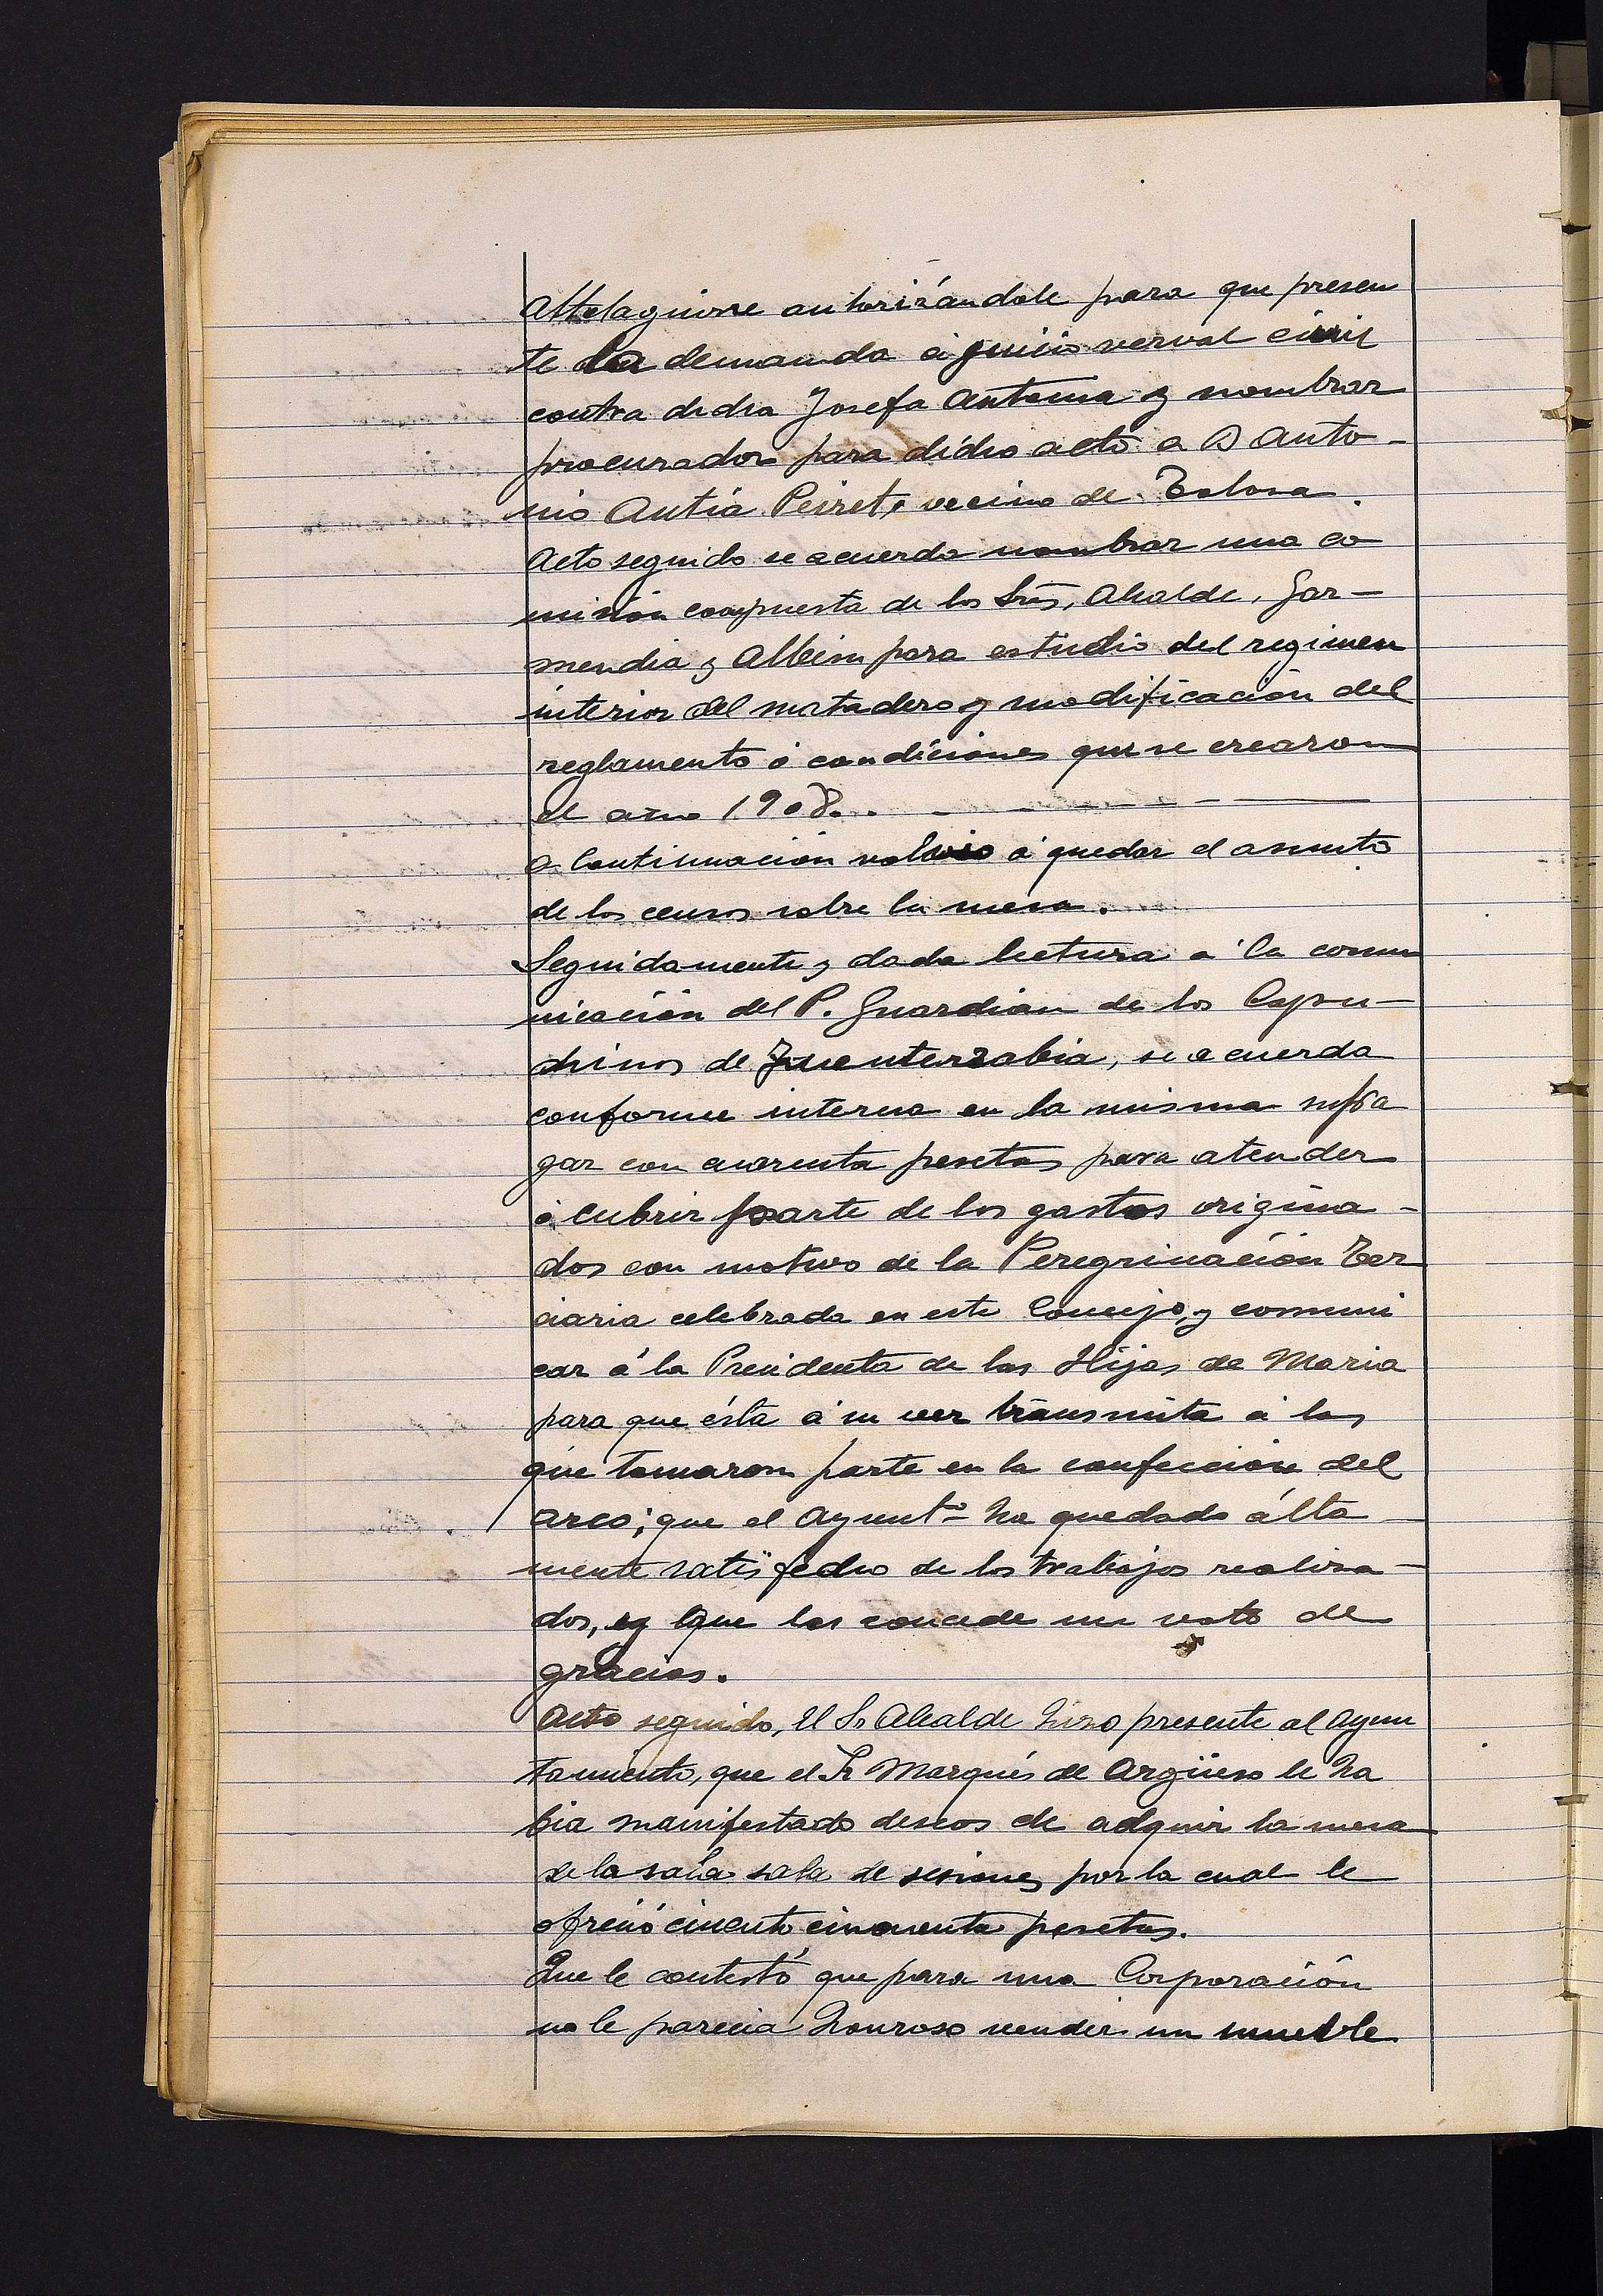 Altelaguirre autorizándole para que presen
te la demanda á juicio verval civil
contra dicha Josefa Antonia y nombrar
procurador para dicho acto a D Anto-
nio Antia Peiret, vecino de Tolosa.
Acto seguido se acuerda nombrar una co
misión compuesta de los Srs, Alcalde, Gar-
mendia y Albisu para estudio del regimen
interior del matadero y modificación del
reglamento ó condiciones que se crearon
el año 1908..
A Continuación volvio á quedar el asunto
de los censos sobre la mesa.
Seguidamente y dada lectura á la comu
nicación del P. Guardian de los Capu-
chinos de Fuenterrabia, se acuerda
conforme interesa en la misma sufra
gar con cuarenta pesetas para atender
á cubrir parte de los gastos origina-
dos con motivo de la Peregrinación Ter
ciaria celebrada en este Concejo, y comuni
car á la Presidenta de las Hijas de Maria
para que ésta á su vez transmita á las
que tomaron parte en la confección del
arco; que el Ayuntº ha quedado álta
mente satisfecho de los trabajos realiza-
dos, y que les concede un voto de
gracias.
Acto seguido, El Sr Alcalde hizo presente al Ayun
tamiento, que el Sr Marqués de Argüeso le ha
bia manifestado deseos de adquir la mesa
de la sala sala de sesiones por la cual le
ofreció ciento cincuenta pesetas.
Que le contestó que para una Corporación
no le parecia honroso vender un mueble